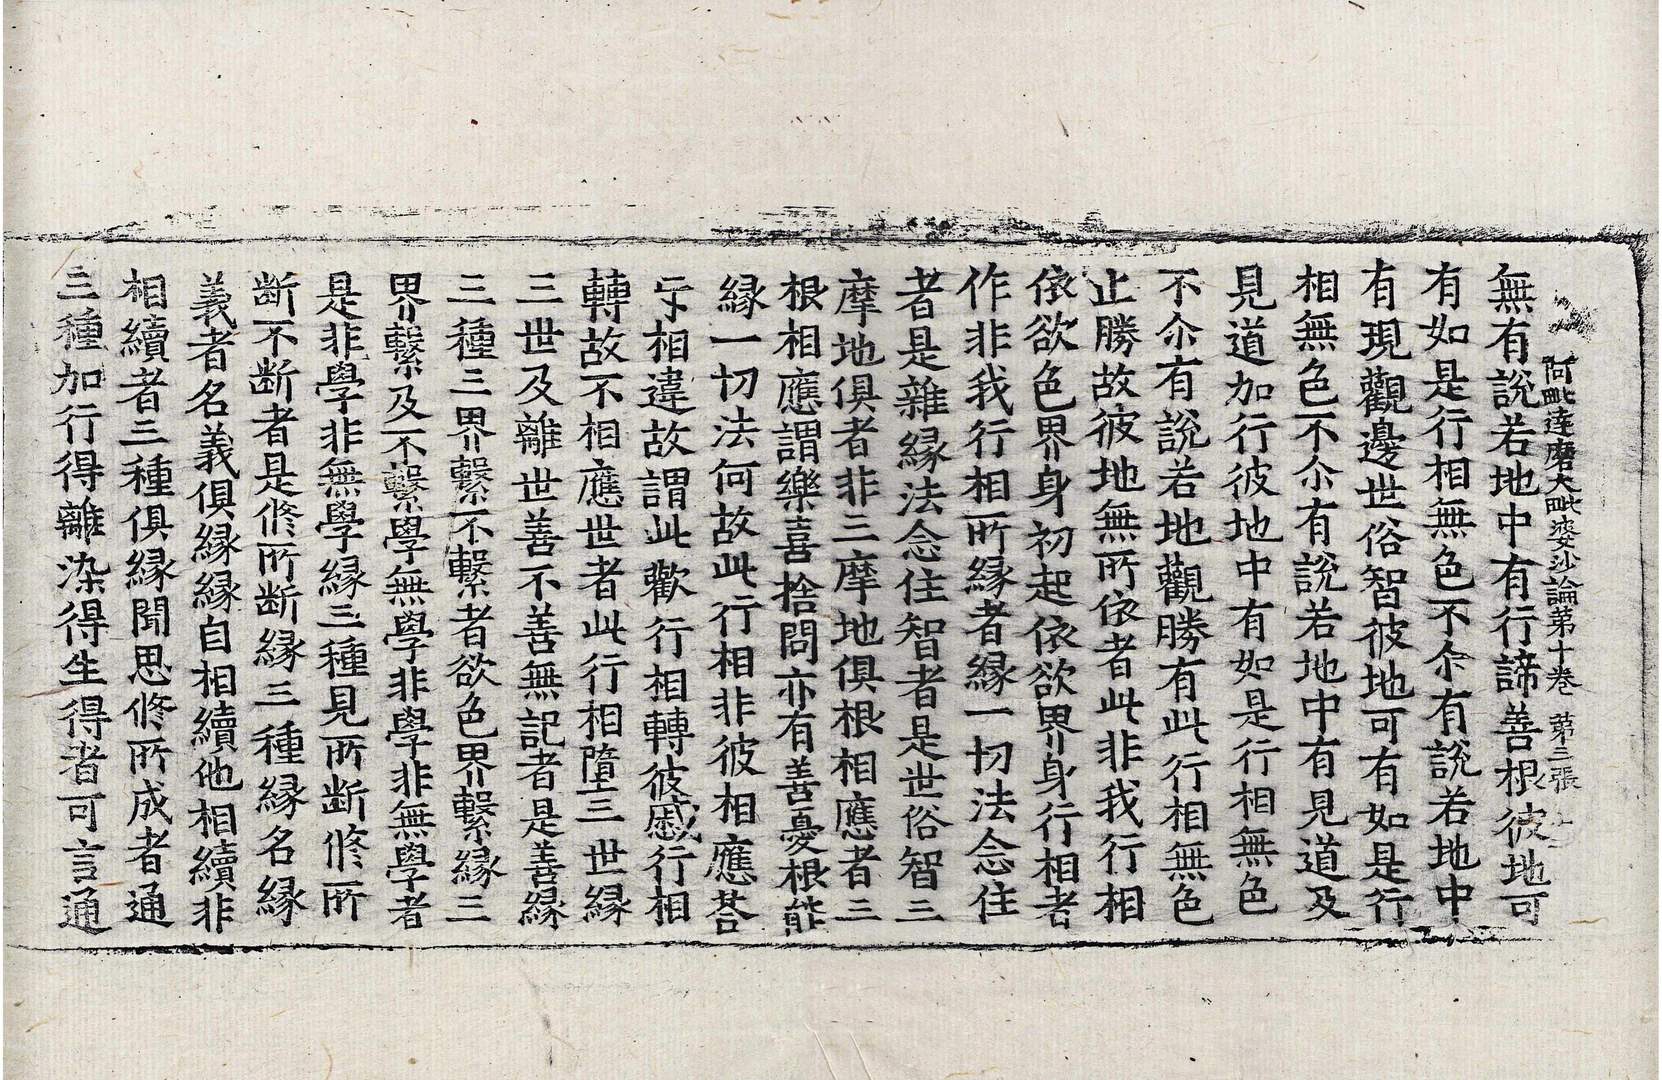 阿毗達磨大毗婆沙論第十卷 第三張
無有說若地中有行諦善根彼地可
有如是行相無色不尒有說若地中
有現觀邊世俗智彼地可有如是行
相無色不尒有說若地中有見道及
見道加行彼地中有如是行相無色
不尒有說若地觀勝有此行相無色
止勝故彼地無所依者此非我行相
依欲色界身初起依欲界身行相者
作非我行相所緣者緣一切法念住
者是雜緣法念住智者是世俗智三
摩地俱者非三摩地俱根相應者三
根相應謂樂喜捨問亦有善憂根能
緣一切法何故此行相非彼相應荅
互相違故謂此歡行相轉彼慼行相
轉故不相應世者此行相墮三世緣
三世及離世善不善無記者是善緣
三種三界繫不繫者欲色界繫緣三
界繫及不繫學無學非學非無學者
是非學非無學緣三種見所斷修所
斷不斷者是修所斷緣三種緣名緣
義者名義俱緣緣自相續他相續非
相續者三種俱緣聞思修所成者通
三種加行得離染得生得者可言通